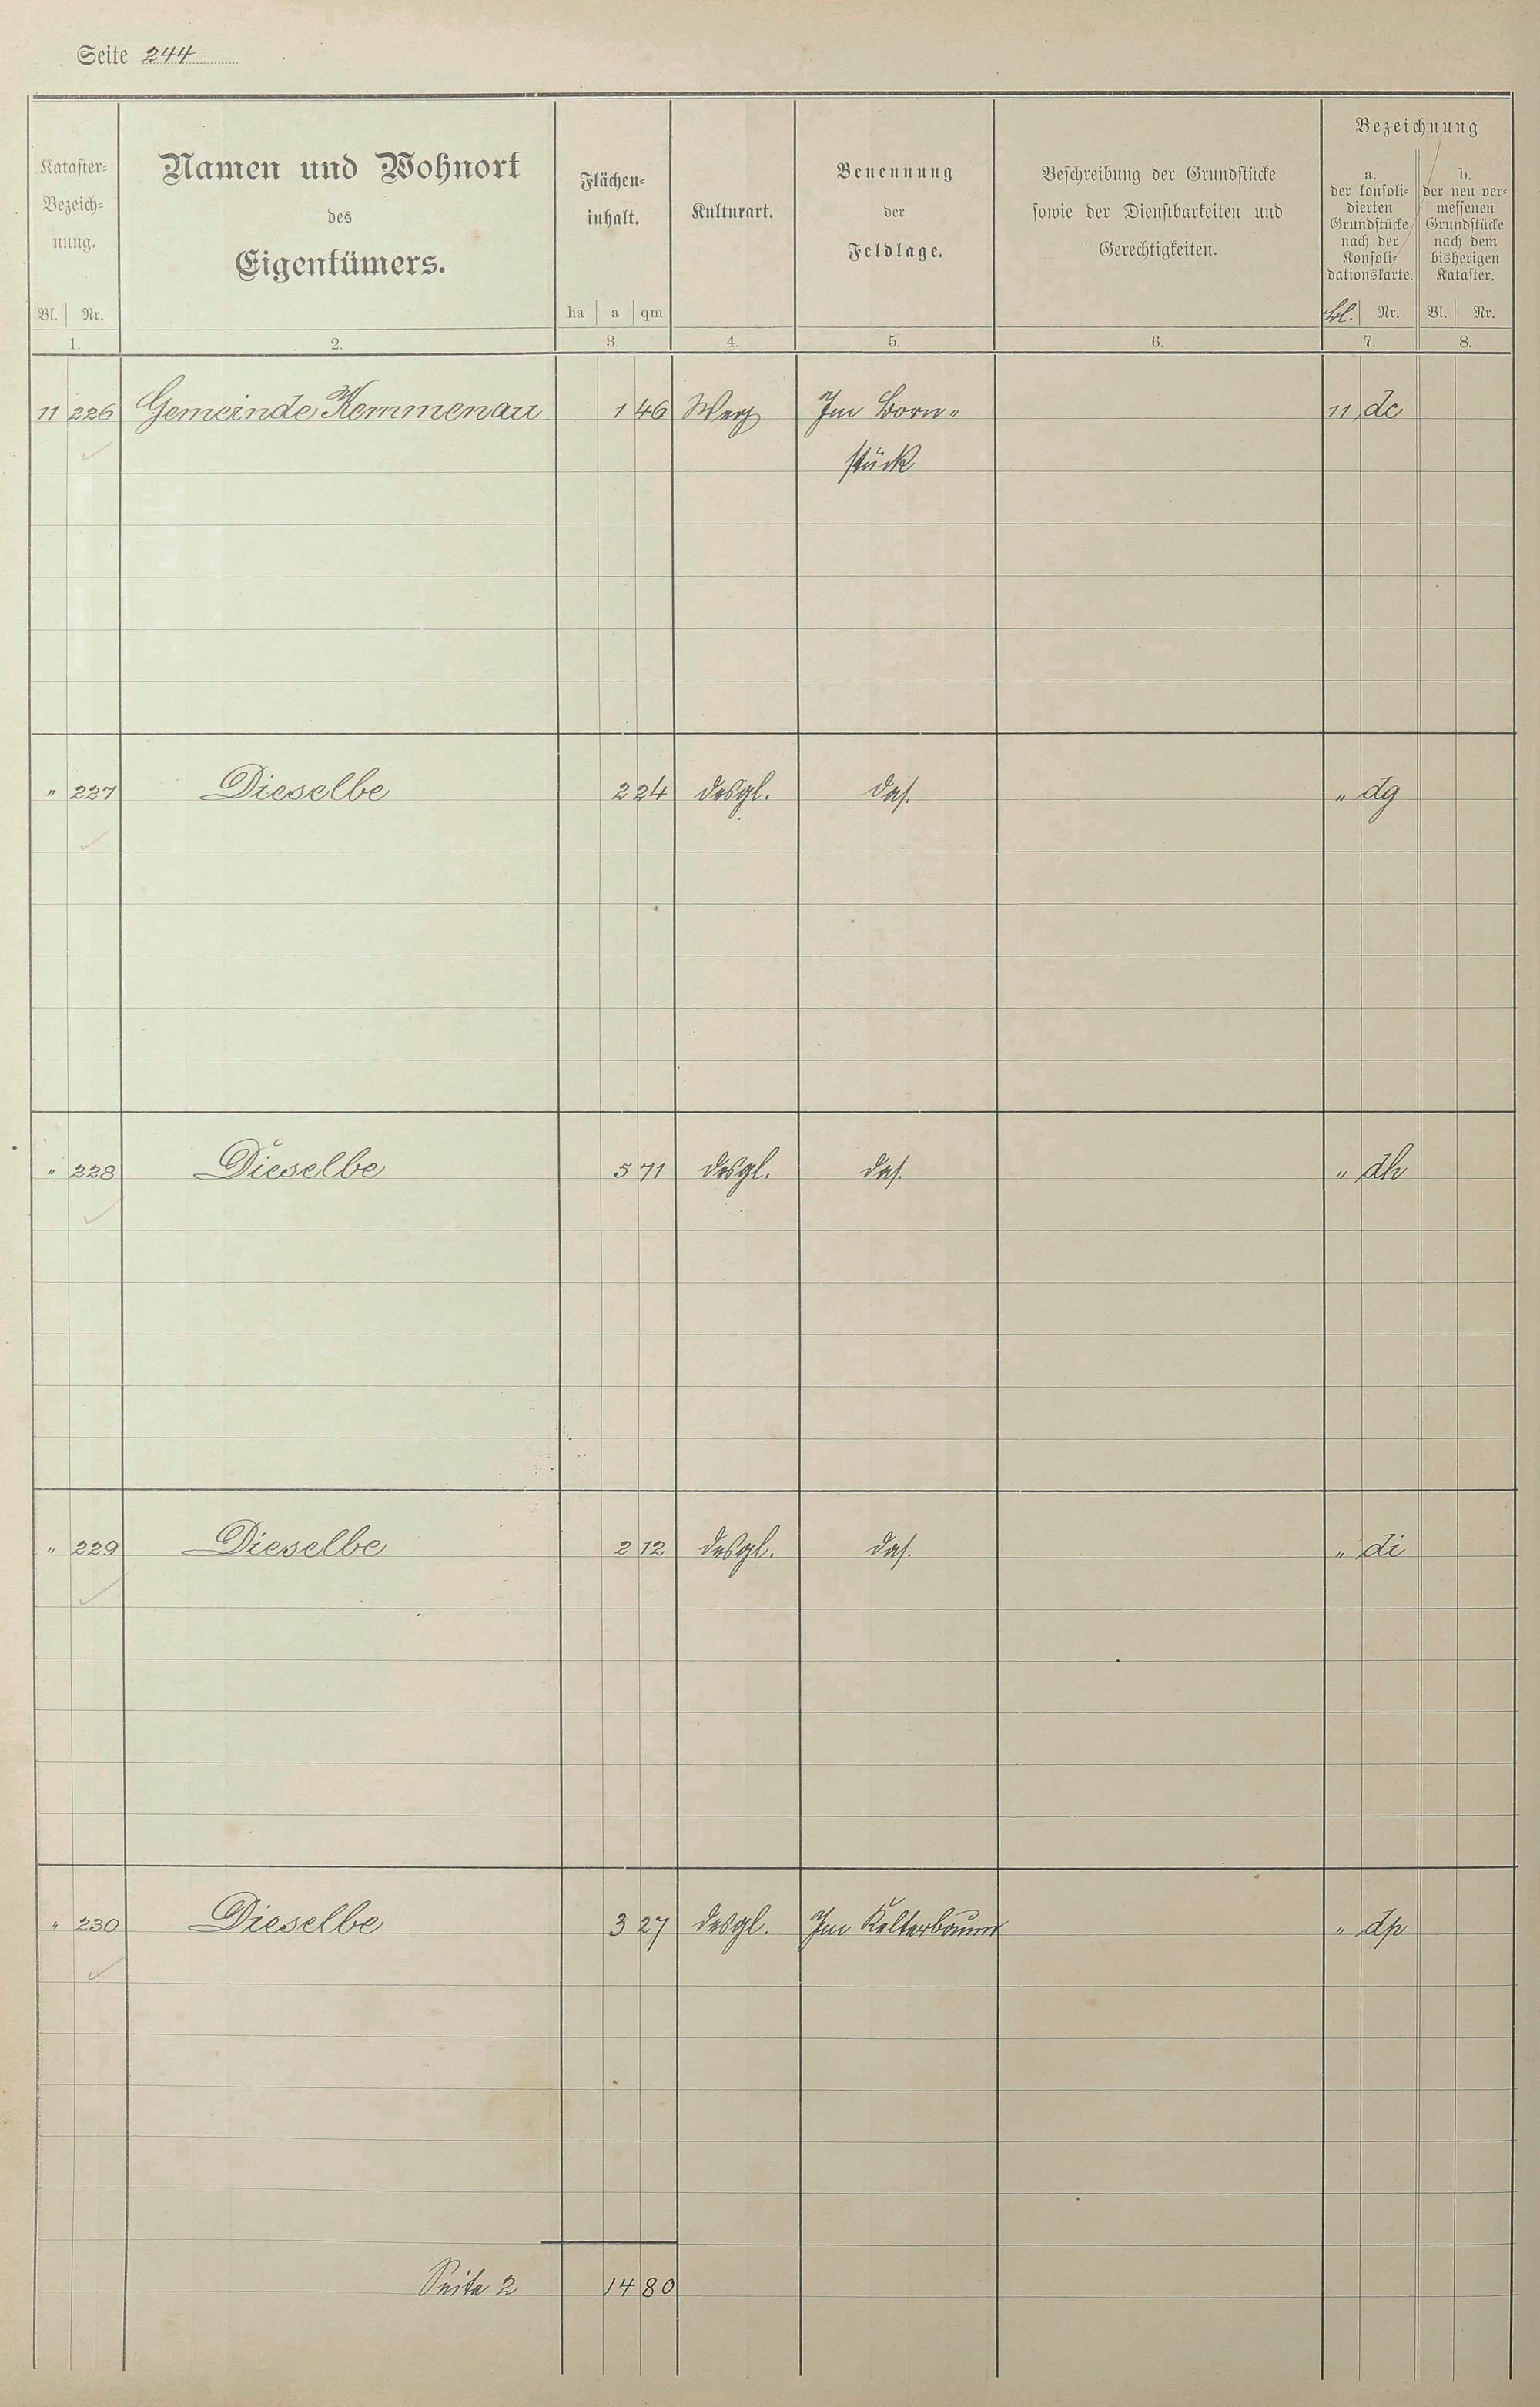 Seite 244
Kataster=
Bezeich=
nung.
Bl. Nr.
1.
Namen und Wohnort
des
Eigentümers.
2.
Flächen=
inhalt.
ha a qm
3.
Kulturart.
4.
Benennung
der
Feldlage.
5.
Beschreibung der Grundstücke
sowie der Dienstbarkeiten und
Gerechtigkeiten.
6.
Bezeichnung
a.
der konsoli=
dierten
Grundstücke
nach der
Konsoli=
dationskarte.
Bl. Nr.
7.
b.
der neu ver=
messenen
Grundstücke
nach dem
bisherigen
Kataster.
Bl. Nr.
8.
11 226 Gemeinde Kemmenau 1 46 Weg Im Born„ 11 dc
stück
" 227 Dieselbe 2 24 desgl. das. " dg
" 228 Dieselbe 5 71 desgl. das. " dh
" 229 Dieselbe 2 12 desgl. das. " di
" 230 Dieselbe 3 27 desgl. Im Kelterbaum " dp
Seite 2 14 80